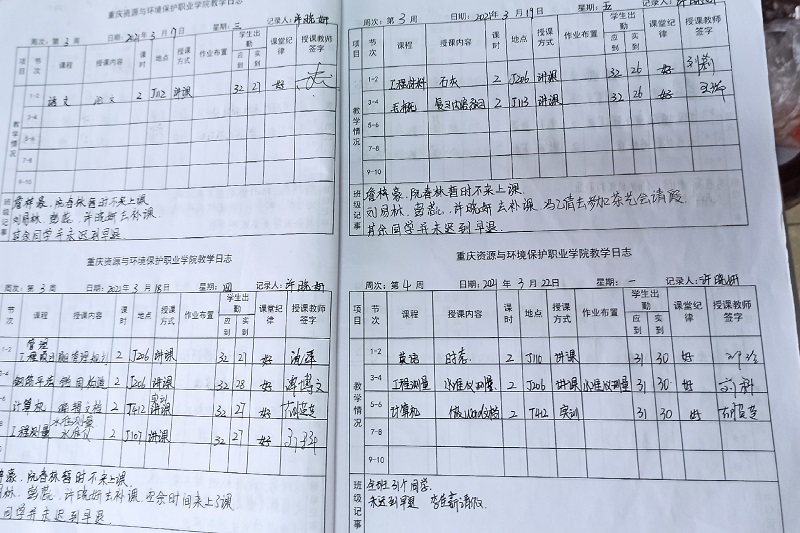 重庆资源与环境保护职业学院教学日志
周次：第 3 周 日期：2021年 3 月 17日 星期：三 记录人：许晓妍
项目 节次 课程 授课内容 课时 地点 授课方式 作业布置 学生出勤 应到 实到 课堂纪律 授课教师签字
教学情况
1-2 语文 2 J112 讲课 32 27 好
3-4
5-6
7-8
9-10
班级记事
詹梓豪、阮春林暂时不来上课
刘易林、许晓妍去补课
其余同学并未迟到早退
周次：第 3 周 日期：2021年 3 月 19日 星期：五
项目 节次 课程 授课内容 课时 地点 授课方式 作业布置 学生出勤 应到 实到 课堂纪律 授课教师签字
教学情况
1-2 工程材料 石灰 2 J206 讲课 32 26 好
3-4 2 J113 讲课 32 26 好
5-6
7-8
9-10
班级记事
詹梓豪、阮春林暂时不来上课
刘易林、许晓妍去补课 去参加茶艺会请假
其余同学并未迟到早退
重庆资源与环境保护职业学院教学日志
周次：第 3 周 日期：2021年 3 月 18日 星期：四 记录人：许晓妍
节次 课程 授课内容 课时 地点 授课方式 作业布置 学生出勤 应到 实到 课堂纪律 授课教师签字
1-2 2 J206 讲课 32 27 好
3-4 2 J206 讲课 32 28 好
5-6 计算机 2 J412 讲课 32 27 好
工程测量 水准仪 2 J107 讲课 32 27 好
阮春林暂时不来上课
许晓妍去补课 其余时间来上课
同学并未迟到早退
重庆资源与环境保护职业学院教学日志
周次：第 4 周 日期：2021年 3 月 22日 星期：一 记录人：许晓妍
项目 节次 课程 授课内容 课时 地点 授课方式 作业布置 学生出勤 应到 实到 课堂纪律 授课教师签字
教学情况
1-2 英语 时态 2 J110 讲课 31 30 好
3-4 工程测量 水准仪测量 2 J206 讲课 水准仪测量 31 30 好
5-6 计算机 做Word文档 2 J412 实训 31 30 好
7-8
9-10
班级记事
全班31个同学
未迟到早退 请假